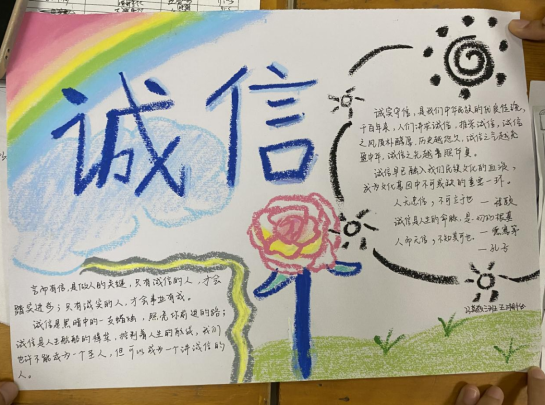 诚信
诚实守信,是我们中华民族的优良传统,
千百年来,人们讲求诚信,推崇诚信。诚信
之风质朴醇厚,历史越悠久,诚信之气越充
盈中华,诚信之光越普照华夏。
诚信早已融入我们民族文化的血液,
成为文化基因中不可或缺的重要一环。
人无忠信,不可立于世
诚信是人生的命脉,是一切的根基
人而无信,不知其可也
—孔子
言而有信,是做人的关键,只有诚信的人,才会
踏实进步;只有诚实的人,才会事业有成。
诚信是黑暗中的一支蜡烛,照亮你前进的路;
诚信是人生航船的舵,控制着人生的航线,我们
也许不能成为一个圣人,但可以成为一个讲诚信的
人。